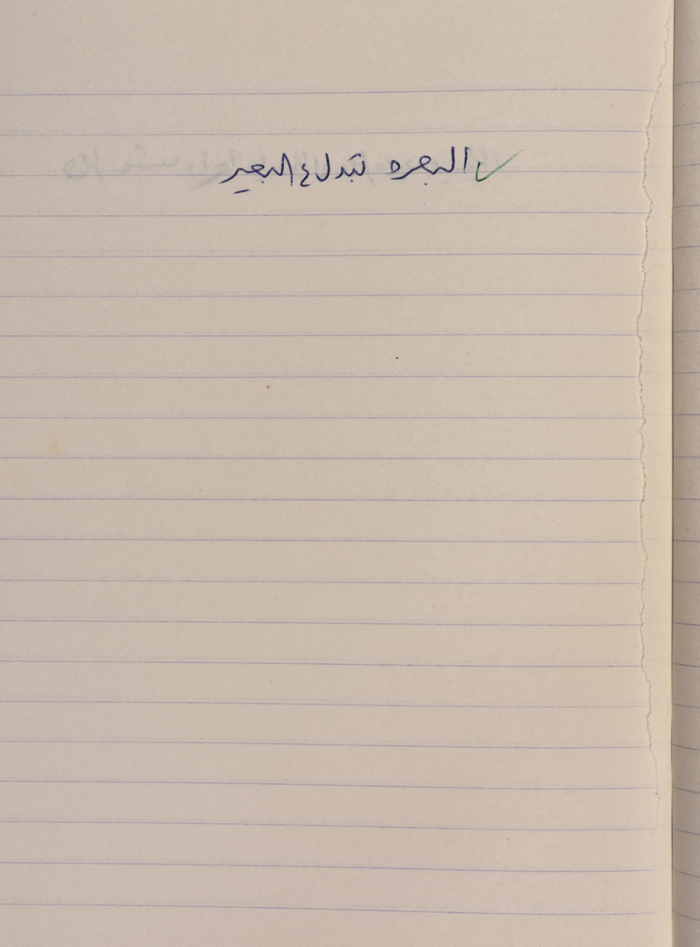 البعره تدل ع البعير